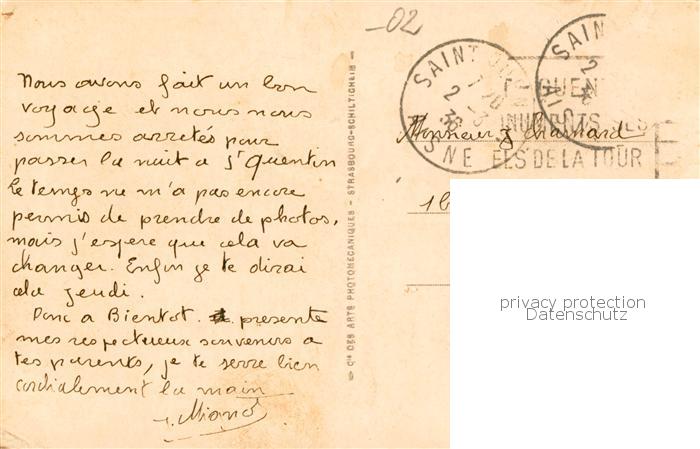 -02
Nous avons fait un bon
voyage et nous nous
sommes arretés pour
passer la nuit a St Quentin
le temps ne m'a pas encore
permis de prendre de photos,
mais j'espere que cela va
changer. Enfin je te dirai
cela jeudi.
Donc a Bientot. presente
mes respectueux souvenirs a
tes parents, je te serre bien
cordialement la main
Cie DES ARTS PHOTOMECANIQUES - STRASBOURG-SCHILTIGHEIM
SAINT QUENTIN
AISNE
SAIN
ELS DE LA TOUR
Monsieur J. Chamard
16
privacy protection
Datenschutz